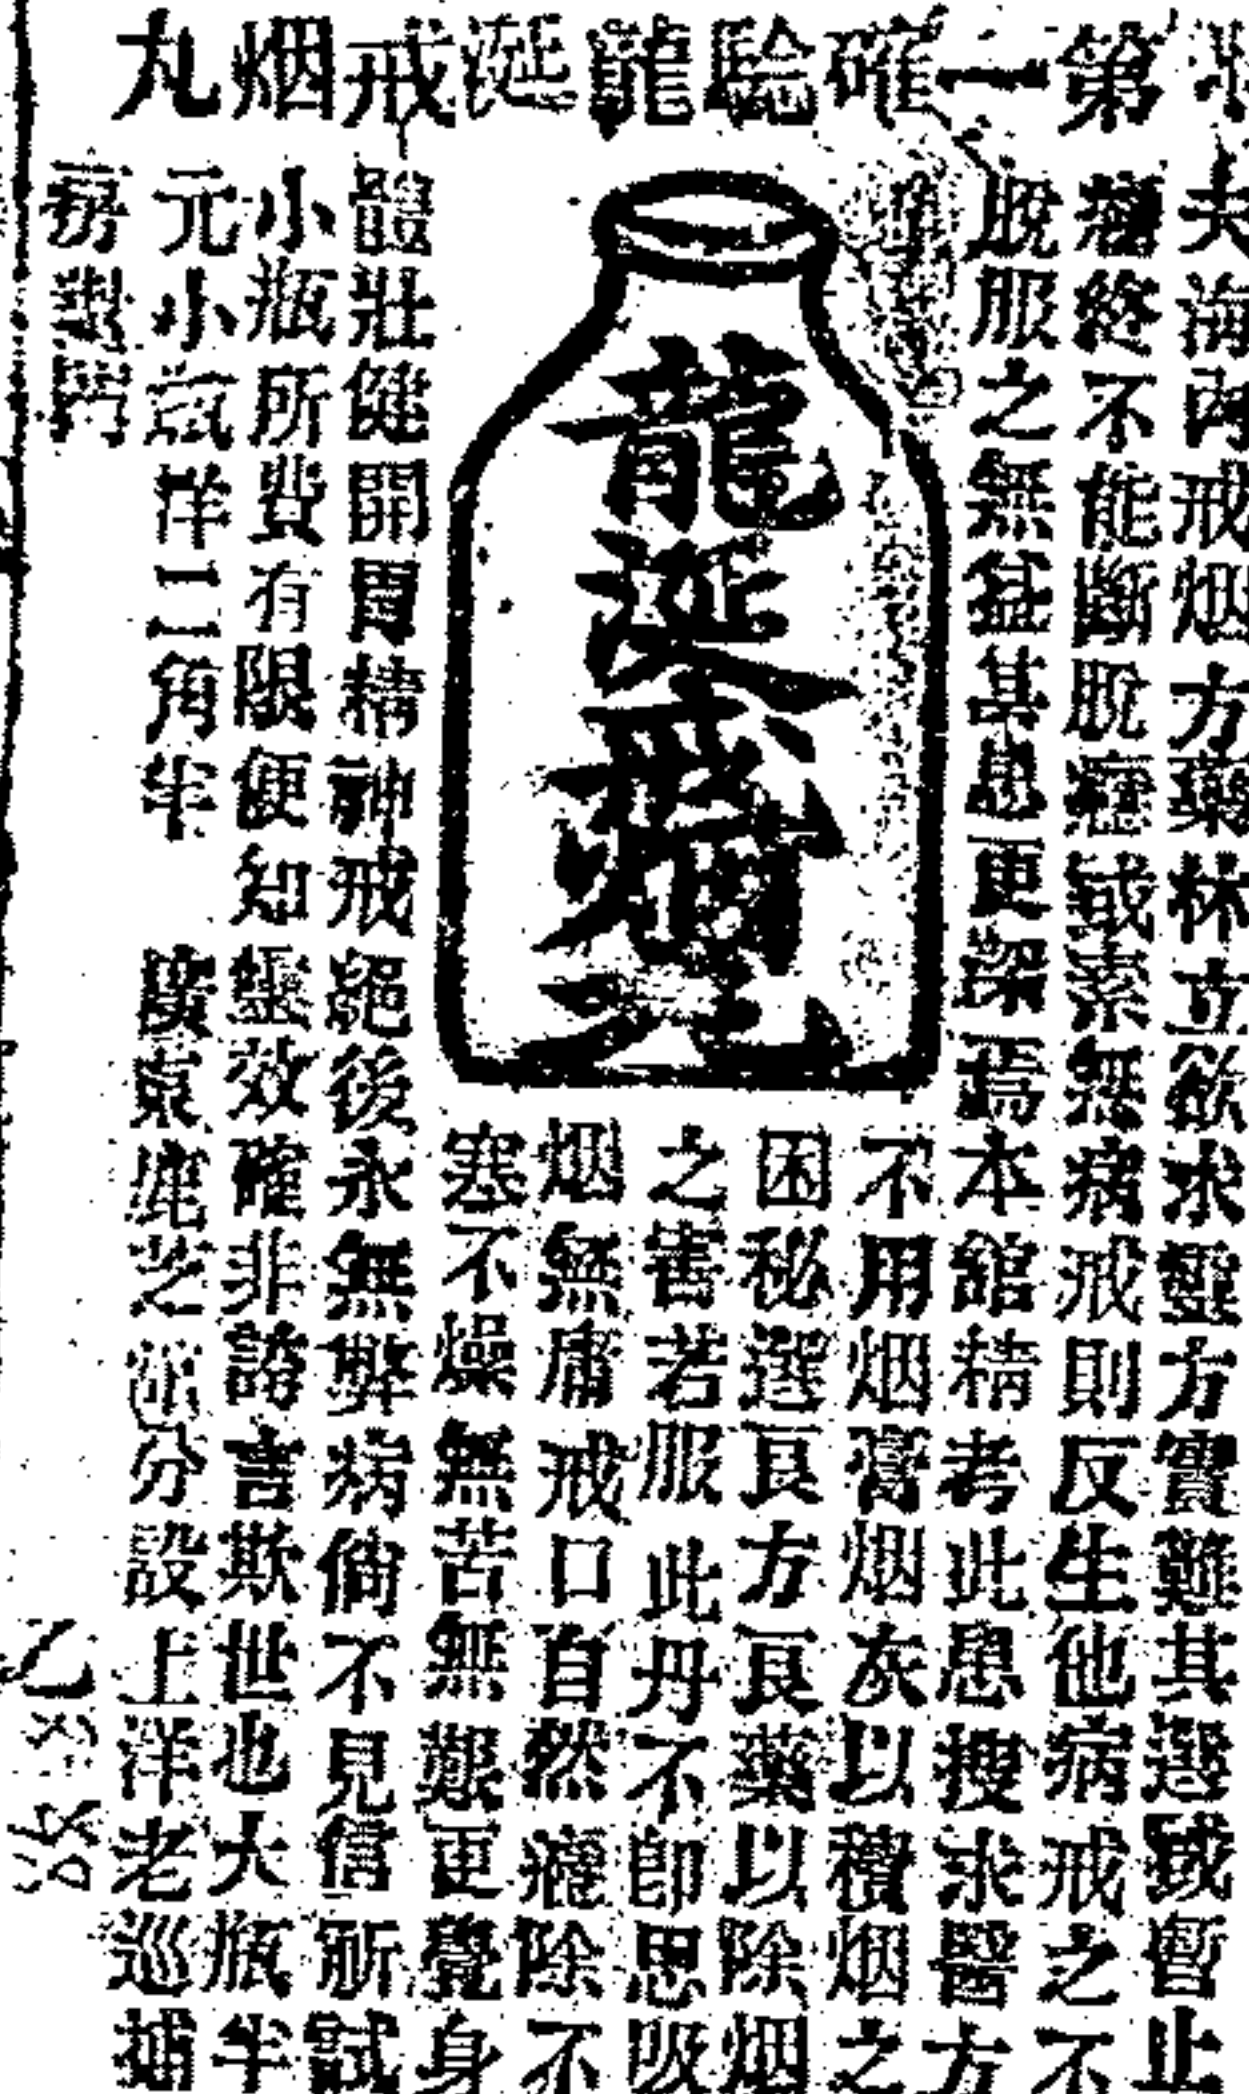 第一確驗龍涎戒烟丸
夫海內戒烟方藥林立欲求靈方實難其選或暫止
癮終不能斷脫癮或素無病戒則反生他病戒之不
脫服之無益其患更深焉本館精考此患搜求醫方
不用烟膏烟灰以積烟之
困秘選良方良藥以除烟
之害若服此丹不卽思吸
烟無庸戒口自然癮除不
塞不燥無苦無艱更覺身
龍涎戒烟丸
體壯健開胃精神戒絕後永無弊病倘不見信祈試
小瓶所費有限便知靈效確非誇言欺世也大瓶半
元小瓶洋二角半 廣東鹿芝館分設上洋老巡捕
房對門 乙